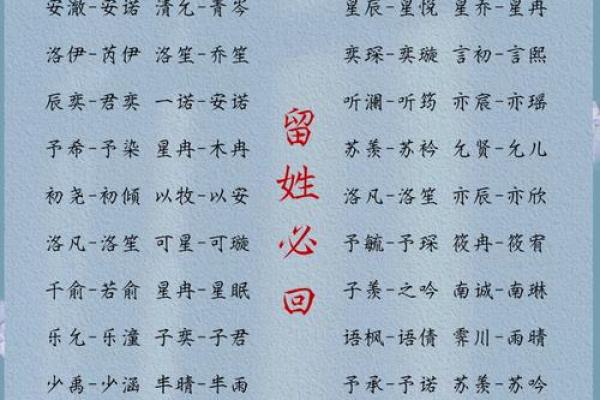 安澈-安诺 清允-青岑
洛伊-芮伊 洛笙-乔笙
辰奕-君奕 一诺-安诺
予希-予染 星冉-木冉
初尧-初倾 以牧-以安
洛凡-洛笙 可星-可璇
千俞-若俞 星冉-星眠
乐允-乐潼 子奕-子君
少禹-少涵 半晴-半雨
留姓必回
星辰-星悦 星乔-星冉
奕琛-奕璇 言初-言熙
听澜-听筠 亦宸-亦瑶
苏羡-苏衿 允贤-允儿
洛凡-洛笙 亦辰-亦欣
予毓-予琛 筱冉-筱宥
子羡-之吟 南诚-南琳
语枫-语倩 霁川-雨晴
予承-予诺 苏羡-苏苡